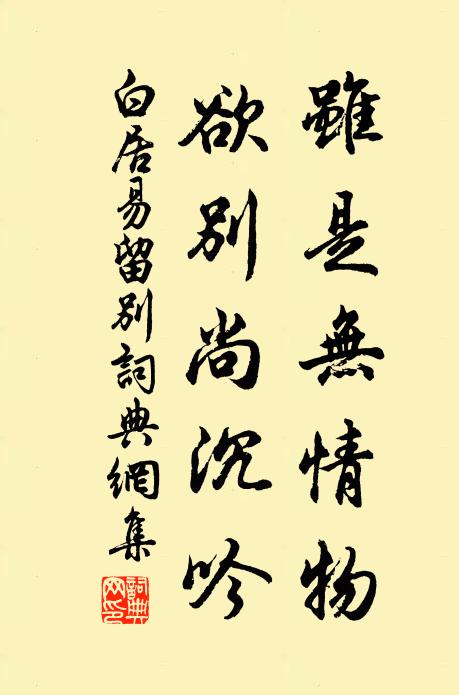 雖是無情物
欲別尚沉吟
白居易留別詞典網集
詞典網印